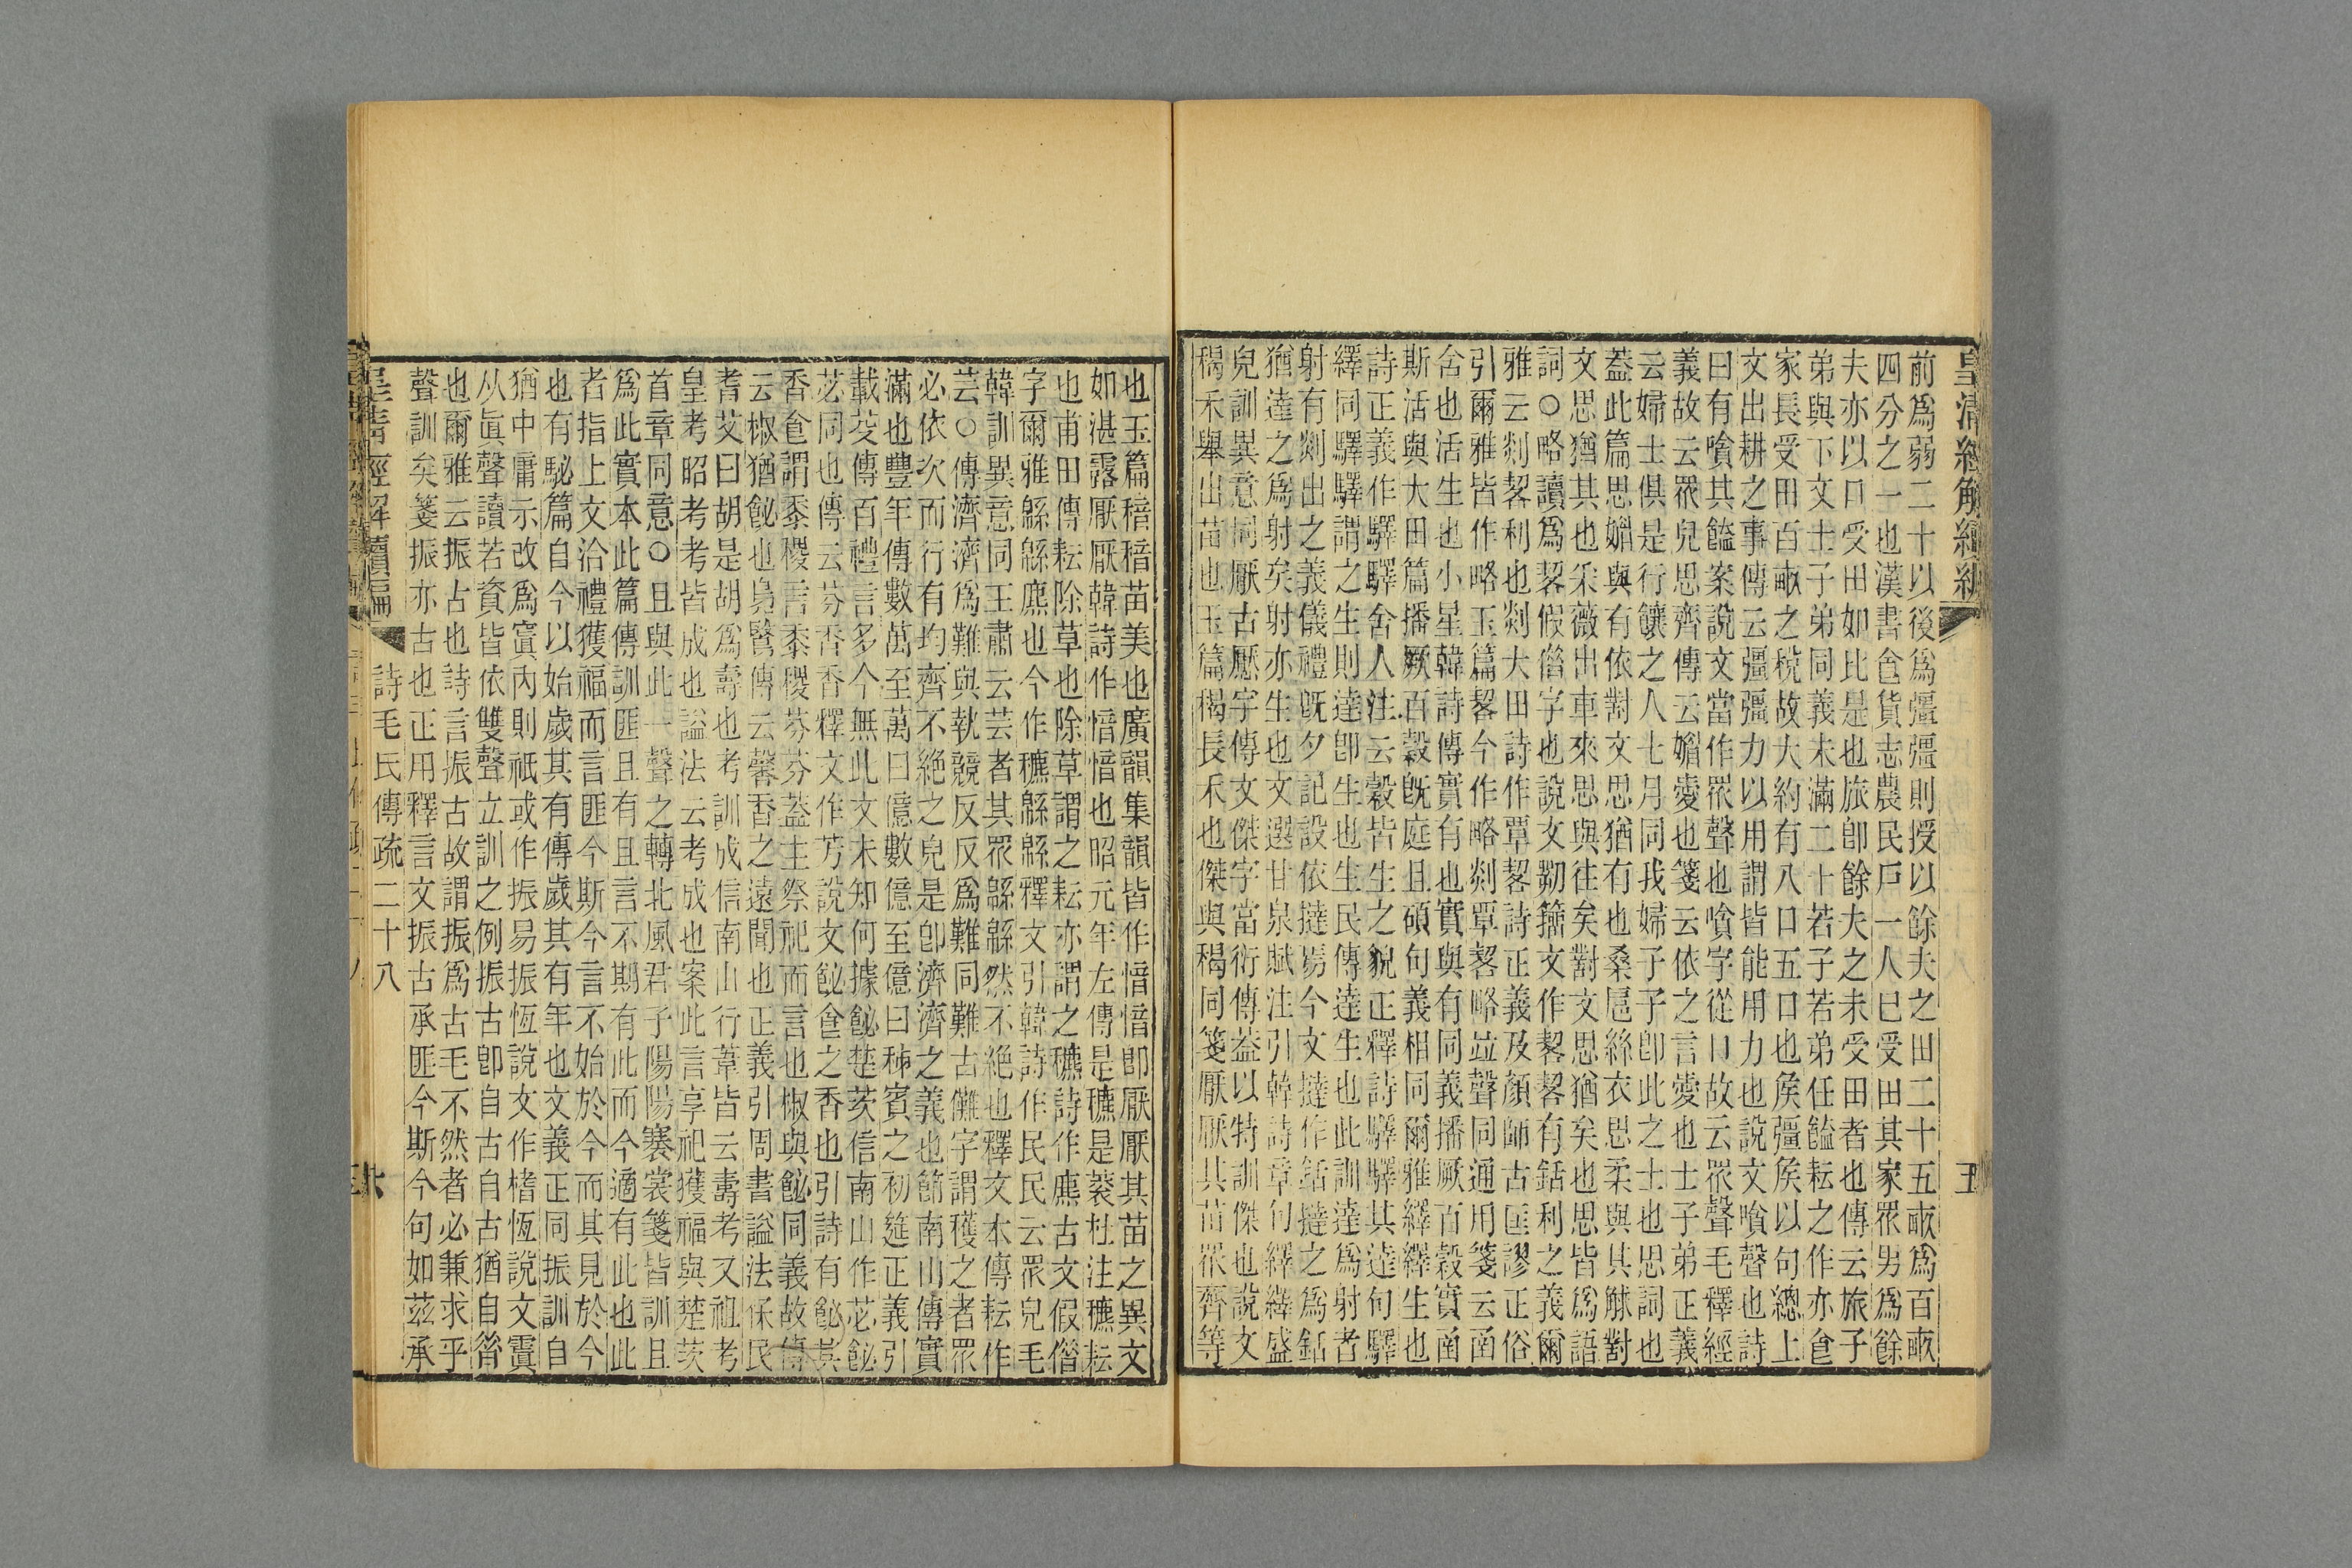 皇清經解續編
五
前爲弱二十以後爲彊彊則授以餘夫之田二十五畝爲百畝
四分之一也漢書食貨志農民戶一人已受田其家眾男爲餘
夫亦以口受田如比是也旅卽餘夫之未受田者也傳云旅子
弟與下文士子弟同義未滿二十若子若弟任饁耘之作亦食
家長受田百畝之稅故大約有八口五口也矦彊矦以句總上
文出耕之事傳云彊彊力以用謂皆能用力也說文噲聲也詩
曰有噲其饁案說文當作眾聲也噲字從口故云眾聲毛釋經
義故云眾皃思齊傳云媚愛也箋云依之言愛也士子弟正義
云婦士俱是行饟之人七月同我婦子子卽此之士也思詞也
葢此篇思媚與有依對文思猶有也桑扈絲衣思柔與其觩對
文思猶其也采薇出車來思與往矣對文思猶矣也思皆爲語
詞○略讀爲䂮假僭字也說文剺籀文作䂮䂮有銛利之義爾
雅云剡䂮利也剡大田詩作覃䂮詩正義及顏師古匡謬正俗
引爾雅皆作略玉篇䂮今作略剡覃䂮略竝聲同通用箋云函
含也活生也小星韓詩傳實有也實與有同義播厥百穀實函
斯活與大田篇播厥百穀旣庭且碩句義相同爾雅繹繹生也
詩正義作驛驛舍人注云穀皆生之貌正釋詩驛驛其達句驛
繹同驛驛謂之生則達卽生也生民傳達生也此訓達爲射者
射有剡出之義儀禮旣夕記設依撻焉今文撻作銛撻之爲銛
猶達之爲射矣射亦生也文選甘泉賦注引韓詩章句繹繹盛
皃訓異意同厭古壓字傳文傑字當衍傳葢以特訓傑也說文
稩禾舉出苗也玉篇稩長禾也傑與稩同箋厭厭其苗眾齊等
也玉篇稖稖苗美也廣韻集韻皆作愔愔卽厭厭其苗之異文
如湛露厭厭韓詩作愔愔也昭元年左傳是穮是蓘杜注穮耘
也甫田傳耘除草也除草謂之耘亦謂之穮詩作麃古文假僭
字爾雅緜緜麃也今作穮緜緜釋文引韓詩作民民云眾皃毛
韓訓異意同王肅云芸者其眾緜緜然不絶也釋文本傳耘作
芸○傳濟濟爲難與執競反反爲難同難古儺字謂穫之者眾
必依次而行有均齊不絶之皃是卽濟濟之義也節南山傳實
滿也豐年傳數萬至萬曰億數億至億曰秭賓之初筵正義引
載芟傳百禮言多今無此文未知何據飶楚茨信南山作苾飶
苾同也傳云芬香香釋文作芳說文飶食之香也引詩有飶其
香食謂黍稷言黍稷芬芬葢主祭祀而言也椒與飶同義故傳
云椒猶飶也鳧鷖傳云馨香之遠聞也正義引周書謚法保民
耆艾曰胡是胡爲壽也考訓成信南山行葦皆云壽考又祖考
皇考昭考考皆成也謚法云考成也案此言享祀獲福與楚茨
首章同意○且與此一聲之轉北風君子陽陽褰裳箋皆訓且
爲此實本此篇傳訓匪且有且言不期有此而今適有此也此
者指上文洽禮獲福而言匪今斯今言不始於今而其見於今
也有駜篇自今以始歲其有傳歲其有年也文義正同振訓自
猶中庸示改爲寘內則祇或作振易振恆說文作榰恆說文霣
从眞聲讀若資皆依雙聲立訓之例振古卽自古自古猶自昝
也爾雅云振古也詩言振古故謂振爲古毛不然者必兼求乎
聲訓矣箋振亦古也正用釋言文振古承匪今斯今句如茲承
皇清經解續編
詩毛氏傳疏二十八